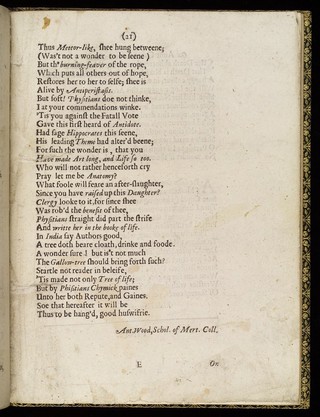 (21)
Thus Meteor-like, shee hung betweene;
(Was't not a wonder to be seene)
But th' burning-feaver of the rope,
Which puts all others out of hope,
Restores her to her selfe; shee is
Alive by Antiperistasis.
But soft! Physitians doe not thinke,
I at your commendations winke.
'Tis you against the Fatall Vote
Gave this first heard of Antidote.
Had sage Hippocrates this seene,
His leading Theme had alter'd beene;
For such the wonder is, that you
Have made Art long, and Life so too.
Who will not rather henceforth cry
Pray let me be Anatomy?
What soole will feare an after-slaughter,
Since you have raised up this Daughter?
Clergy looke to it, for since shee
Was rob'd the benefit of thee,
Physitians straight did part the strife
And writte her in the booke of life.
In India say Authors good,
A tree doth beare cloath, drinke and foode.
A wonder sure! but is't not much
The Gallow-tree should bring forth such?
Startle not reader in beleife,
'Tis made not only Tree of life;
But by Phisitians Chymick paines
Unto her both Repute, and Gaines.
Soe that hereafter it will be
Thus to be hang'd, good huswifrie.
Ant. Wood, Schol. of Mert. Coll.
E On